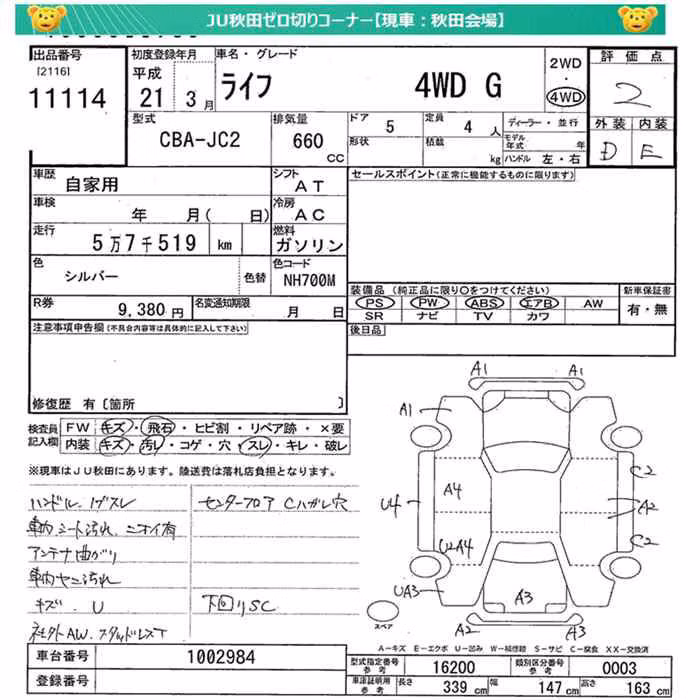 JU秋田ゼロ切りコーナー【現車：秋田会場】
出品番号 初度登録年月 車名・グレード 2WD ・ 4WD 評価点
[2116] 11114 平成 21 3月 ライフ 4WD G 2
型式 排気量 ドア 5 定員 4 人 ディーラー・並行 外装 内装
CBA-JC2 660 CC 形状 積載 kg モデル年式 年 ハンドル 左・右 D E
車歴 自家用 シフト AT セールスポイント(正常に機能するものに限ります)
車検 年 月( 日) 冷房 AC
走行 5万7千519 km 燃料 ガソリン
色 シルバー 色替 色コード NH700M
装備品 (純正品に限り○をつけてください) 新車保証書
PS PW ABS エアB AW 有・無
SR ナビ TV カワ
R券 9,380円 名変通知期限 月 日
注意事項申告欄(不具合内容等は具体的に記入して下さい) 後日品
修復歴 有 [箇所 ]
検査員記入欄 FW キズ・飛石・ヒビ割・リペア跡・×要
内装 キズ・汚レ・コゲ・穴・スレ・キレ・破レ
※現車はJU秋田にあります。陸送費は落札店負担となります。
ハンドル、ノブスレ センターフロア Cハガレ穴
車内シート汚れ、ニオイ有
アンテナ曲がり
車内ヤニ汚れ
キズ、U 下回りSC
社外AW、スタッドレスT
A1 A1
A1
C2
A4
U4 A2
U2A4 C2
UA3 A3
スペア A2 A3
A-キズ E-エクボ U-凹み W-補修跡 S-サビ C-腐食 XX-交換済
車台番号 1002984 型式指定番号 参考 16200 類別区分番号 参考 0003
登録番号 車庫証明用 参考 長さ 339 cm 幅 147 cm 高さ 163 cm